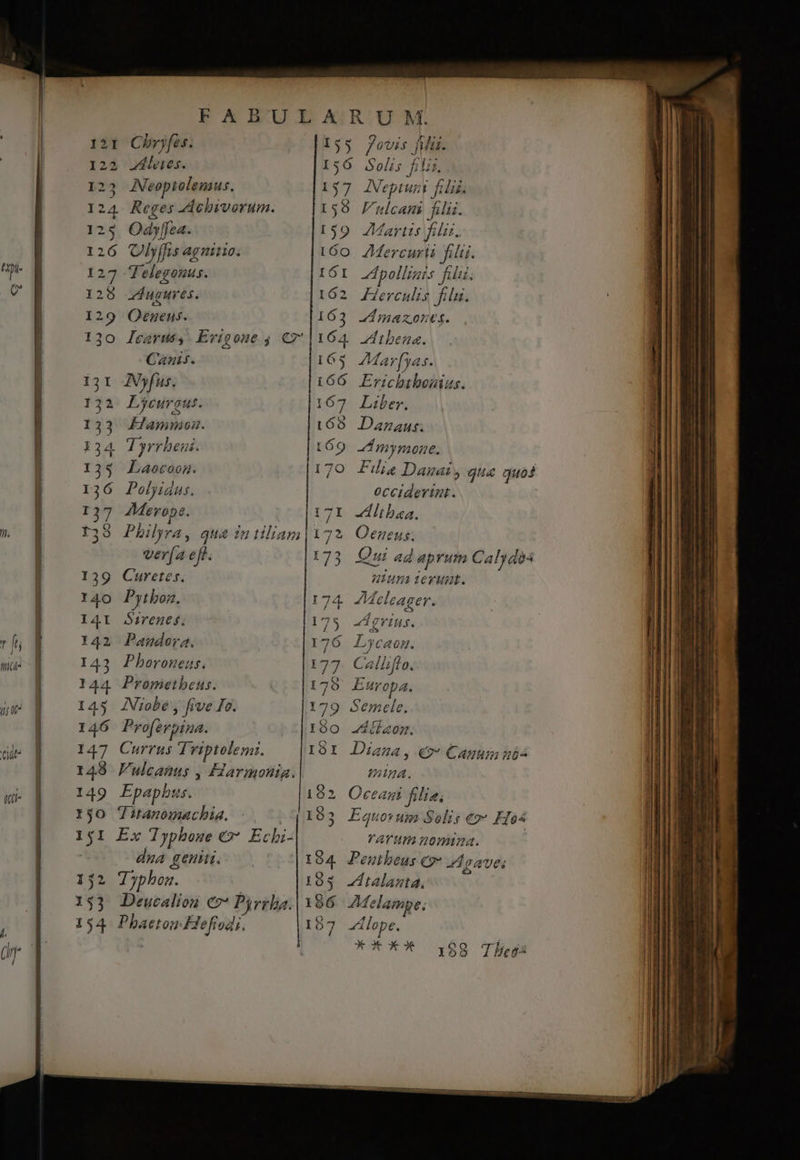 FABULARUM.
121 Chryſes.
122 Aletes.
123 Neoptolemus.
124 Reges Achivorum.
125 Odyſſea.
126 Ulyſſis agnitio.
127 Telegonus.
128 Augures.
129 Oeneus.
130 Icarus, Erigone, &
Canis.
131 Nyſus.
132 Lycurgus.
133 Hammon.
134 Tyrrheni.
135 Laocoon.
136 Polyidus.
137 Merope.
138 Philyra, quæ in tiliam
verſa eſt.
139 Curetes.
140 Python.
141 Sirenes.
142 Pandora.
143 Phoroneus.
144 Prometheus.
145 Niobe, ſive Io.
146 Proſerpina.
147 Currus Triptolemi.
148 Vulcanus, Harmonia.
149 Epaphus.
150 Titanomachia.
151 Ex Typhone & Echi-
dna geniti.
152 Typhon.
153 Deucalion & Pyrrha.
154 Phaeton Heſiodi.
155 Jovis filii.
156 Solis filii.
157 Neptuni filii.
158 Vulcani filii.
159 Martis filii.
160 Mercurii filii.
161 Apollinis filii.
162 Herculis filii.
163 Amazones.
164 Athenæ.
165 Marſyas.
166 Erichthonius.
167 Liber.
168 Danaus.
169 Amymone.
170 Filiæ Danai, quæ quos
occiderint.
171 Althæa.
172 Oeneus.
173 Qui ad aprum Calydo-
nium ierunt.
174 Meleager.
175 Agrius.
176 Lycaon.
177 Calliſto.
178 Europa.
179 Semele.
180 Actæon.
181 Diana, & Canum no-
mina.
182 Oceani filiæ.
183 Equorum Solis & Ho-
rarum nomina.
184 Pentheus & Agave.
185 Atalanta.
186 Melampe.
187 Alope.
**** 188 Theo-